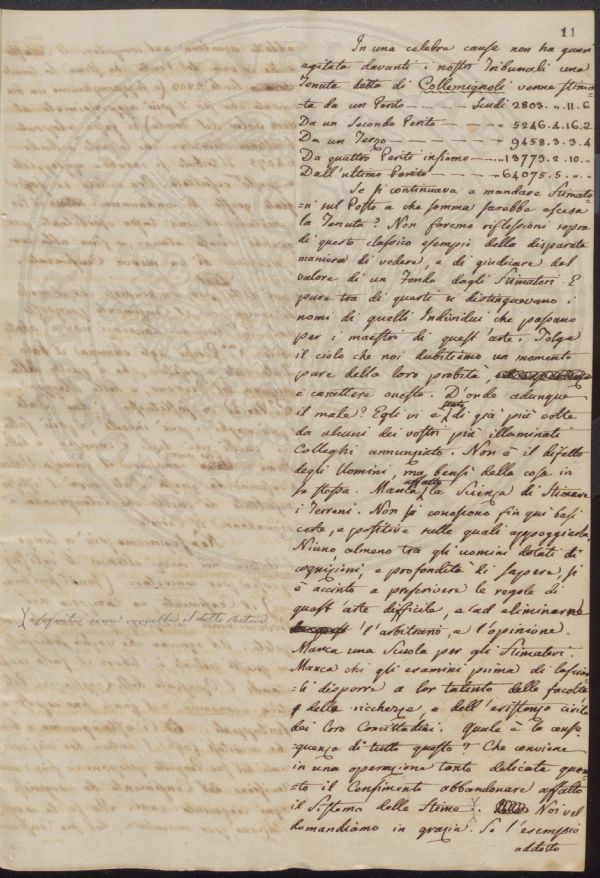 11
In una celebre causa non ha guari
agitata davanti i nostri Tribunali una
Tenuta detta di Collemignoli venne stima=
=ta da un Perito — — — Scudi 2803. „ 11. 6
Da un Secondo Perito — — — „ 5246. 4. 16. 2
Da un Terzo — — — „ 9458. 3. 3. 4
Da quattro Periti insieme — — „ 13773. 2. 10. „
Dall'ultimo Perito — — „ 64075. 5. „ „
Se si continuava a mandare Stimato=
=ri sul Posto a che somma sarebbe ascesa
la Tenuta? Non faremo riflessioni sopra
di questo classico esempio della disparata
maniera di vedere, e di giudicare del
valore di un Fondo dagli Stimatori. E
pure tra di questi si distinguevano i
nomi di quelli Individui che passano
per i maestri di quest'arte. Tolga
il cielo che noi dubitiamo un momento
pure della loro probità,
e carattere onesto. D'onde adunque
il male? Egli vi è stato di già più volte
da alcuni dei vostri più illuminati
Colleghi annunziato. Non è il difetto
degli Uomini, ma bensì della cosa in
se stessa. Manca affatto la Scienza di Stimare
i Terreni. Non si conoscono fin quì basi
certe, e positive sulle quali appoggiarla.
Niuno, almeno tra gli uomini dotati di
cognizioni, e profondità di sapere, si
è accinto a prescrivere le regole di
quest'arte difficile, e ad eliminarne
l'arbitrario, e l'opinione.
Manca una Scuola per gli Stimatori.
Manca chi gli esamini prima di lascian=
=li disporre a lor talento delle facoltà
delle ricchezze, e dell'esistenza civile
dei loro Concittadini. Quale è la conse
guenza di tutto questo? Che conviene
in una operazione tanto delicata quan=
=to il Censimento abbandonare affatto
il Sistema delle Stime X. Noi vel
domandiamo in grazia. Se l'esempio
addotto
X come vorrebbe il detto Autore